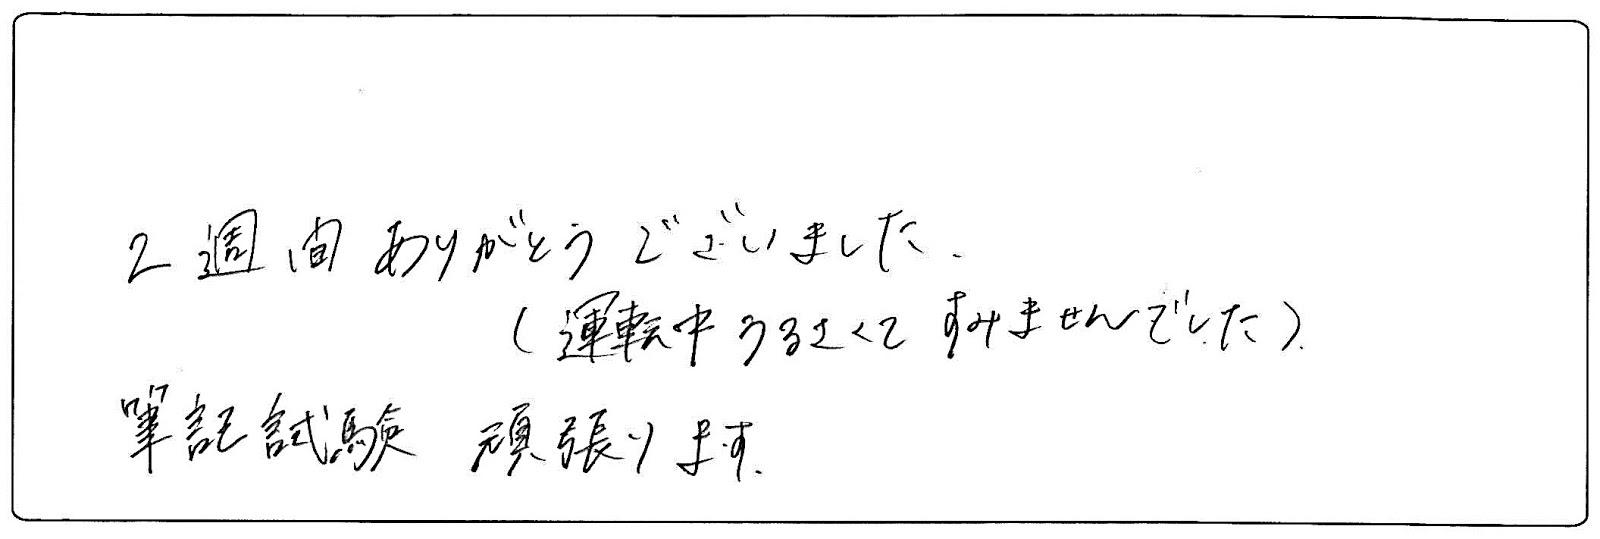 2週間ありがとうございました.
(運転中うるさくてすみませんでした).
筆記試験 頑張ります.